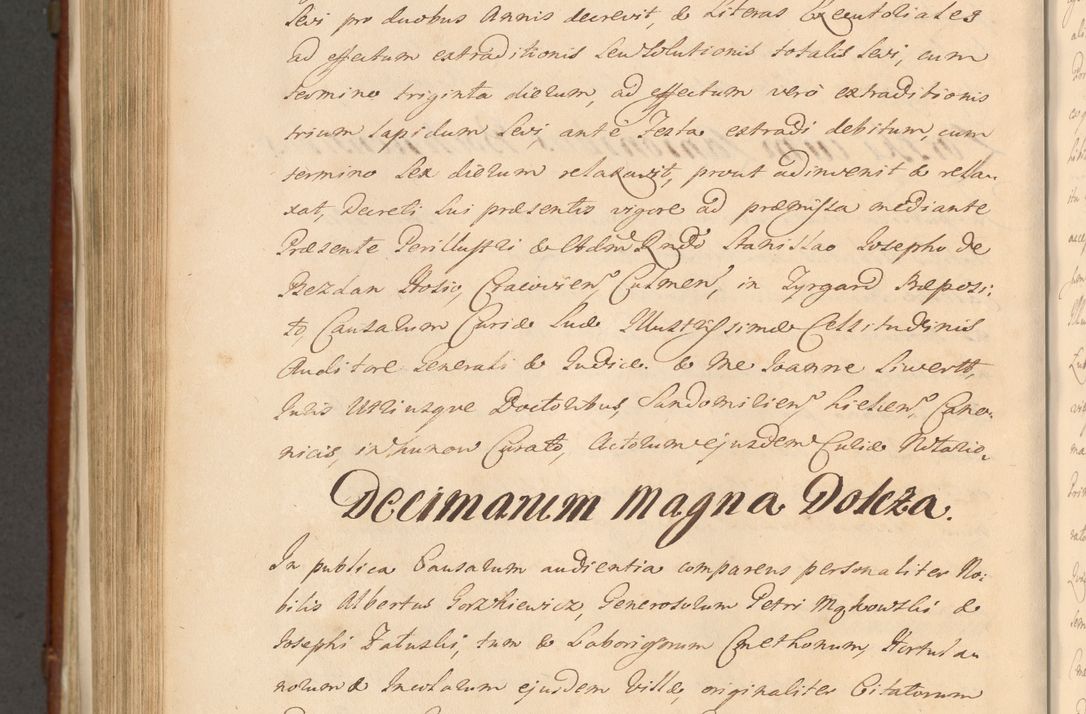 Sevi pro duobus Annis decrevit, & Literas Executoliales
ad effectum extraditionis seu solutionis totalis Sevi, cum
termino triginta dierum, ad effectum verò extraditionis
trium lapidum Sevi, ante Festa extradi debitum, cum
termino sex dierum relaxavit, prout adinvenit & rela-
xat, Decreti sui præsentis vigore ad præmissa mediante
Præsente Perillustri & Adm Rndo Stanislao Josepho de
Bezdan Hosio, Cracovien, Culmen, in Zyrgard Præposi-
to, Causarum Curiæ Suæ Illustrissimæ Celsitudinis
Auditore Generali & Judice. & Me Joanne Siwertt,
Juris Utriusque Doctoribus, Sandomirien, Kielcen, Cano-
nicis, in Curato, Actorum ejusdem Curiæ Notario.
Decimarum Magna Dokza.
In publica Causarum audientia comparens personaliter No-
bilis Albertus Gorzkiewicz, Generosorum Petri &
Josephi Zaluski, tum & Laborigorum Cmethonum, Hortula-
norum & Incolarum ejusdem Villæ, originaliter Citatorum